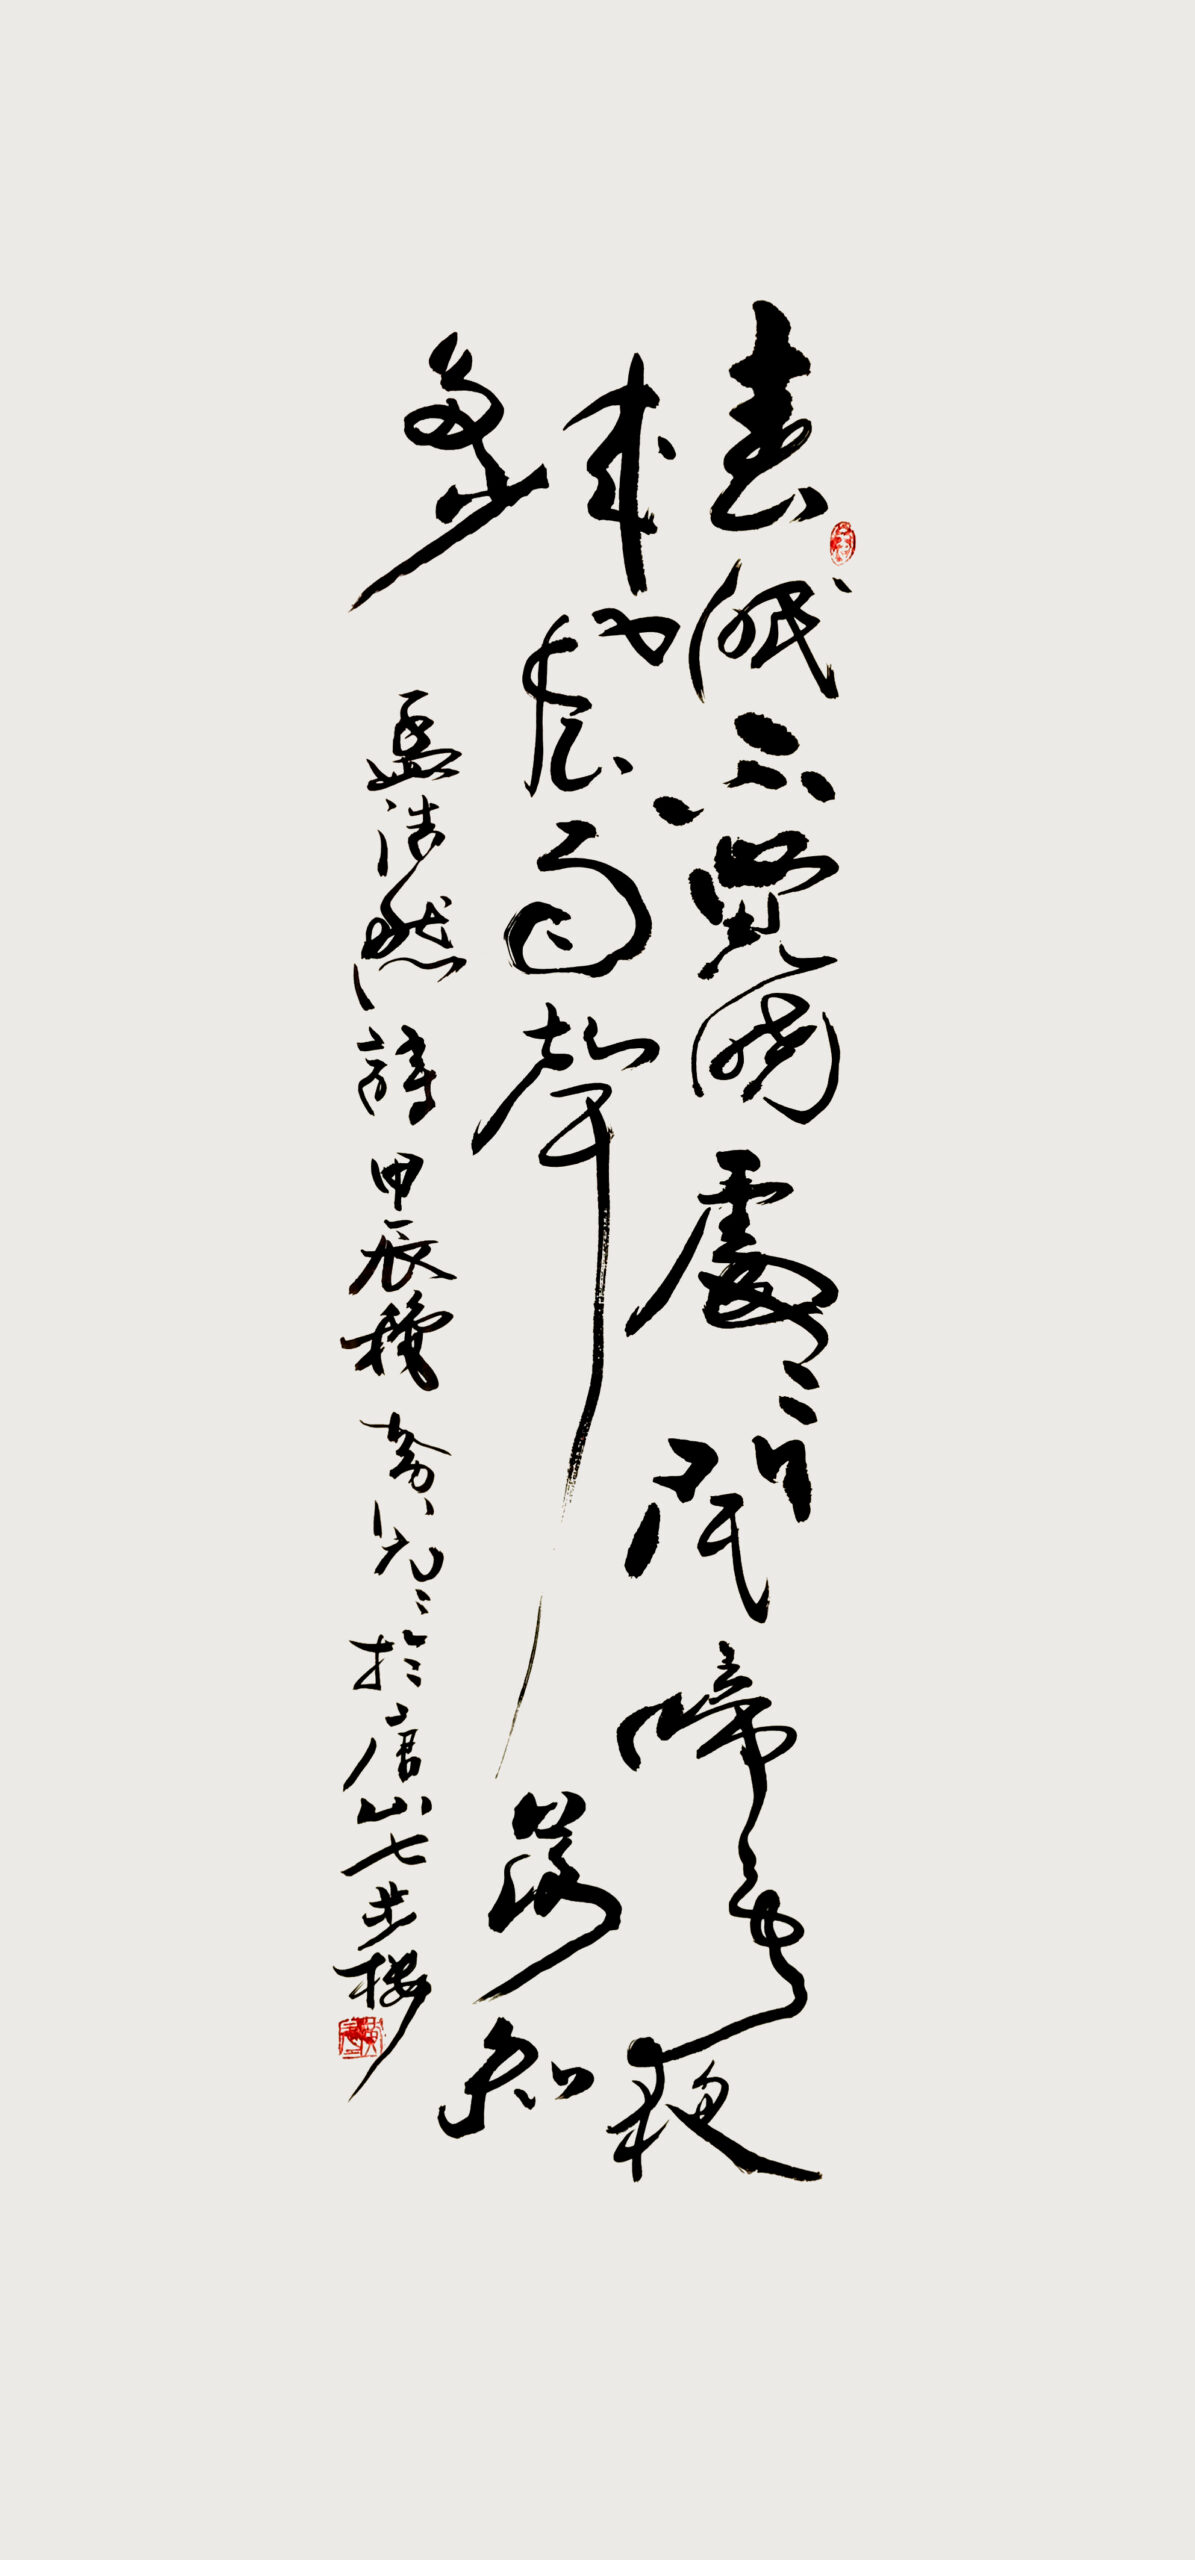 春眠不覺曉處々聞啼鳥夜
來風雨聲落知
多少
孟浩然詩 甲辰穐 黄 於唐山七步楼